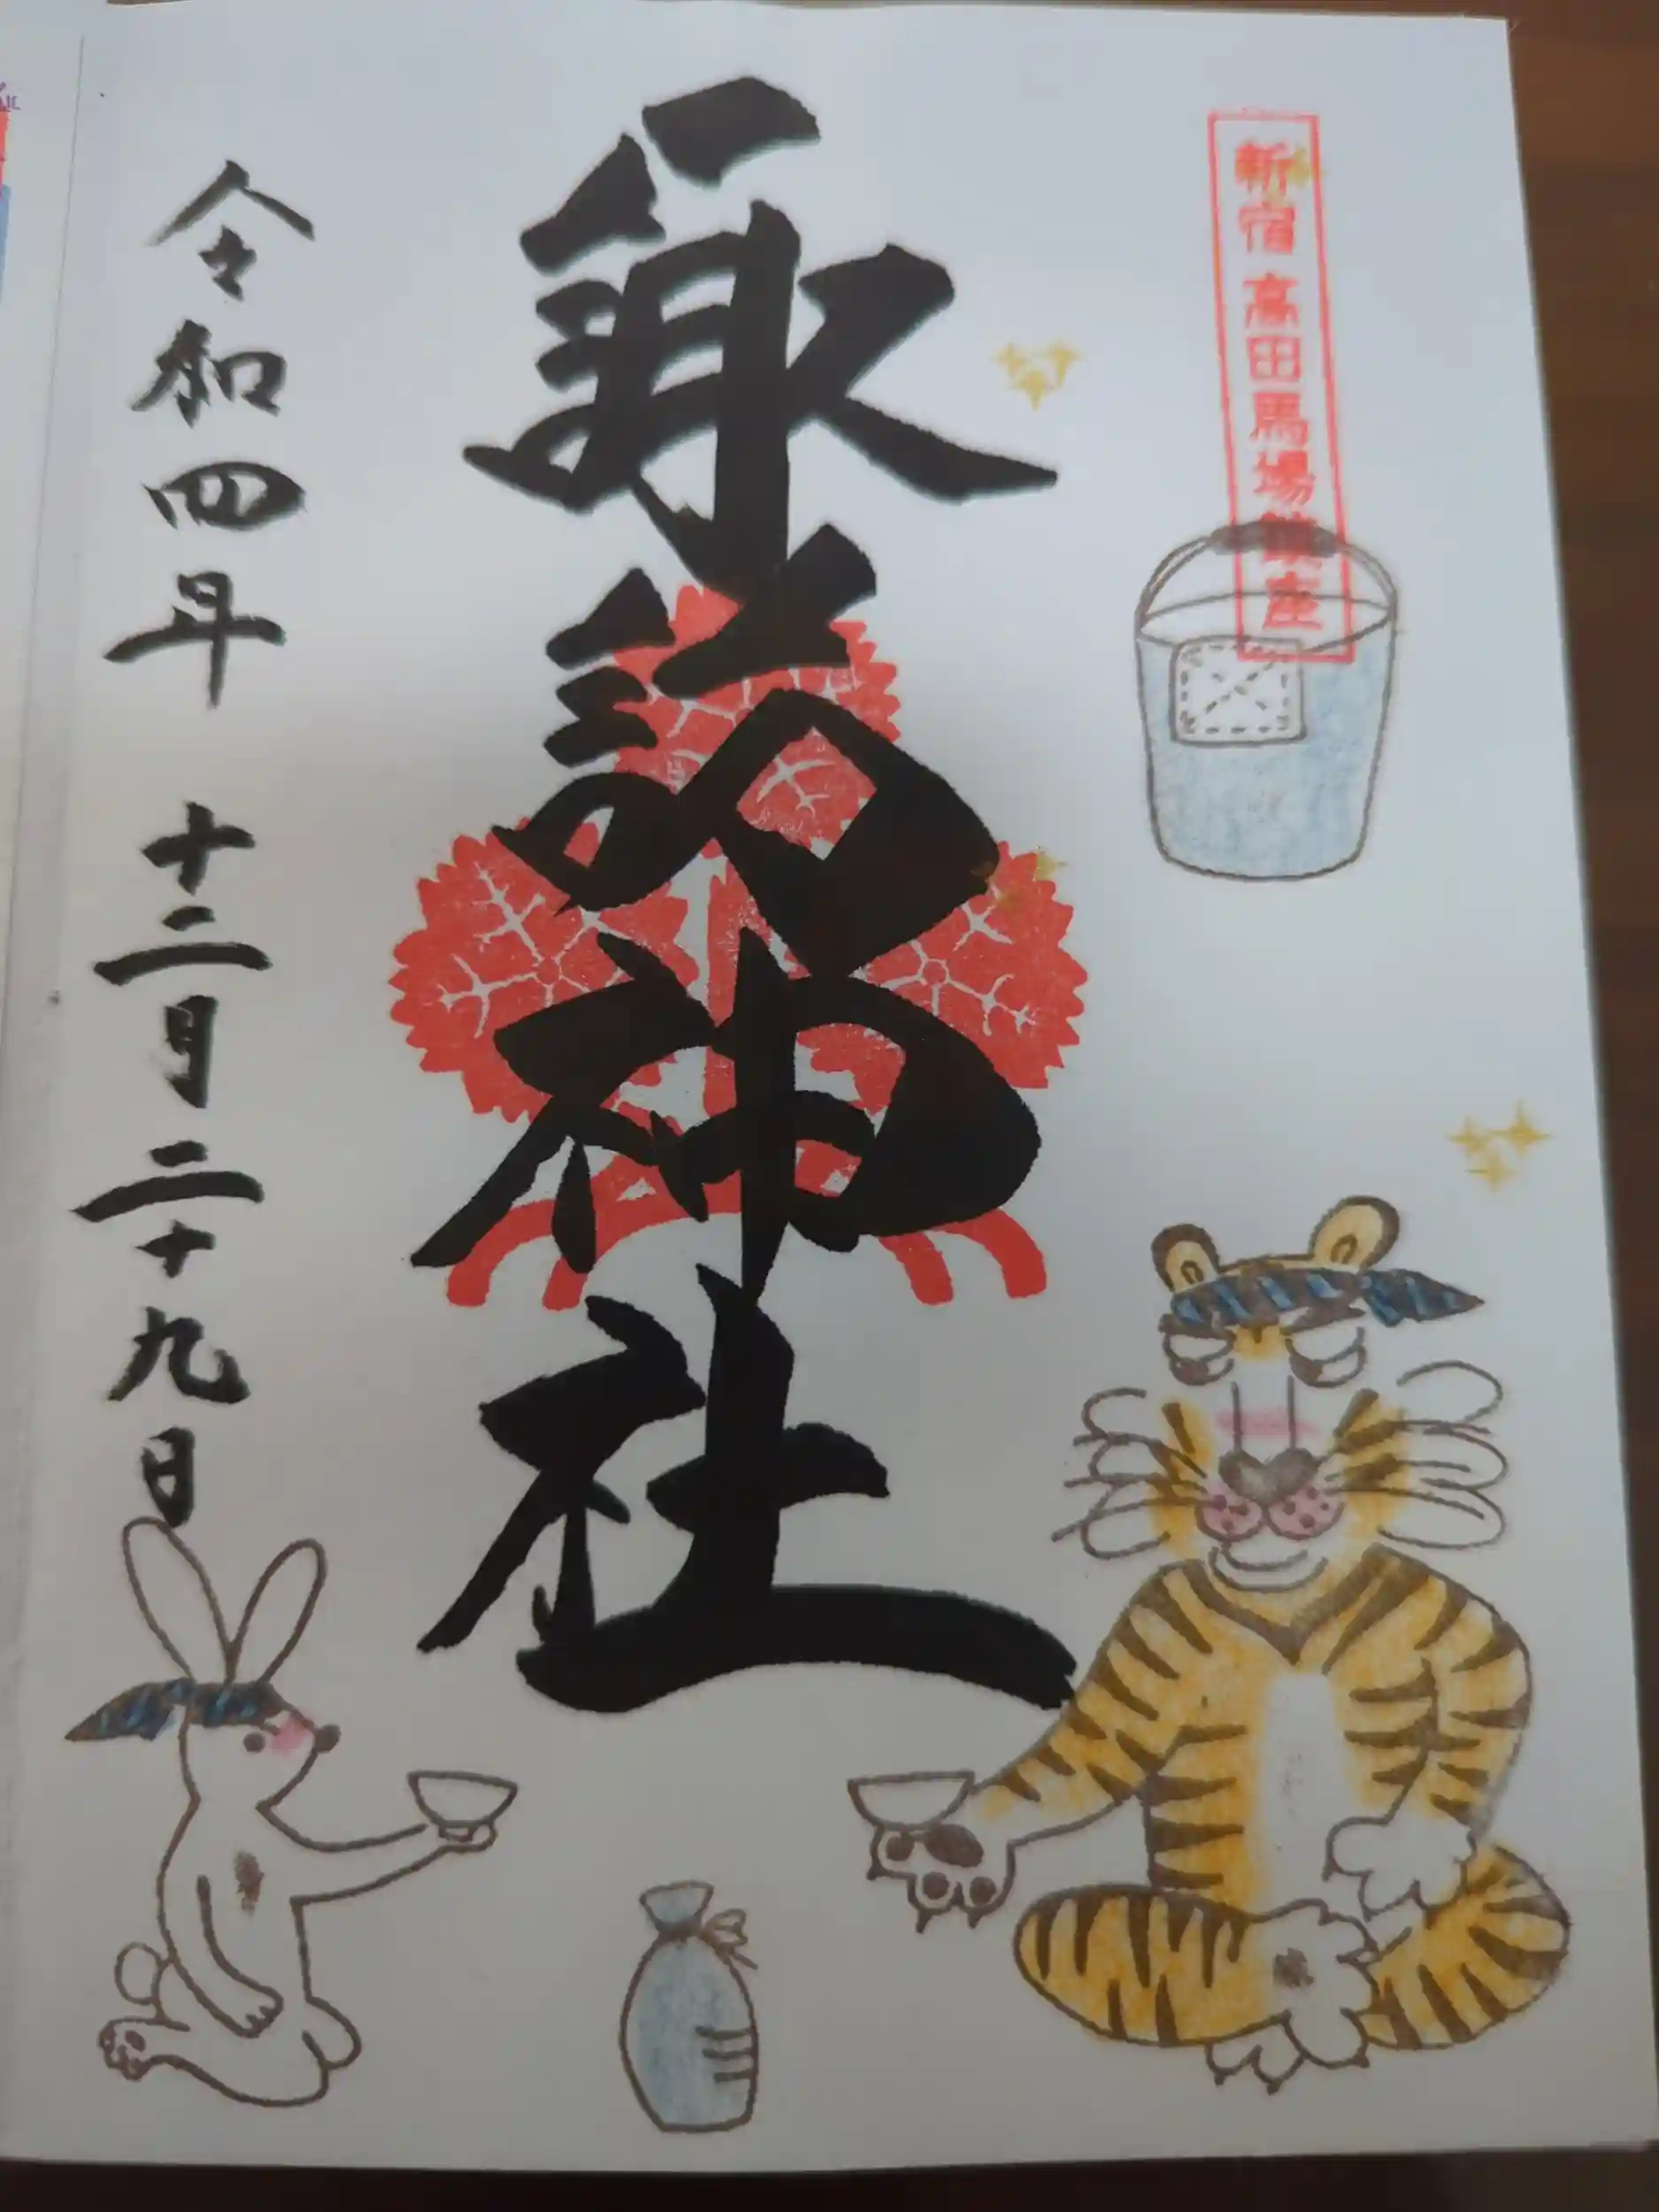 新宿高田馬場鎮座
諏訪神社
令和四年 十二月二十九日